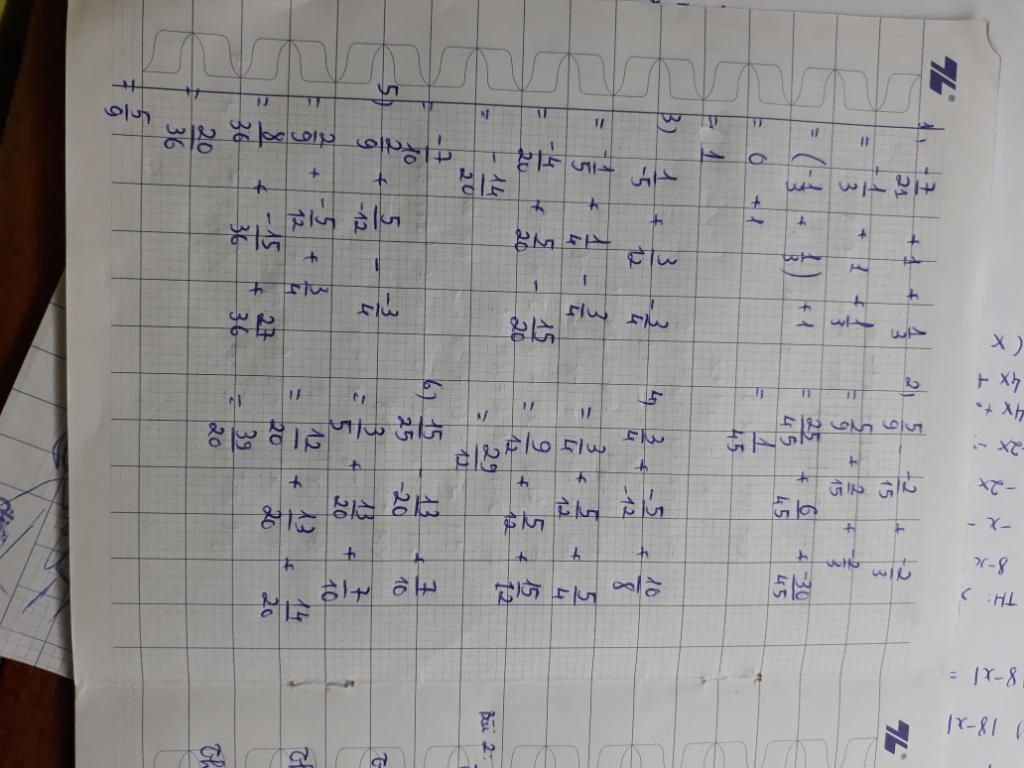 1) -7/21 + 1 + 1/3
= -1/3 + 1 + 1/3
= (-1/3 + 1/3) + 1
= 0 + 1
= 1
2) 5/9 - -2/15 + -2/3
= 5/9 + 2/15 + -2/3
= 25/45 + 6/45 + -30/45
= 1/45
3) 1/-5 + 3/12 - 3/4
= -1/5 + 1/4 - 3/4
= -4/20 + 5/20 - 15/20
= -14/20
= -7/10
4) 3/4 + -5/-12 + 10/8
= 3/4 + 5/12 + 5/4
= 9/12 + 5/12 + 15/12
= 29/12
5) 2/9 + 5/-12 - -3/4
= 2/9 + -5/12 + 3/4
= 8/36 + -15/36 + 27/36
= 20/36
= 5/9
6) 15/25 - 13/-20 + 7/10
= 3/5 + 13/20 + 7/10
= 12/20 + 13/20 + 14/20
= 39/20
Bài 2:
(x
4x +
4x +
-2x
-2x
-x -
8-x
TH:
|8-x| =
|8-x|